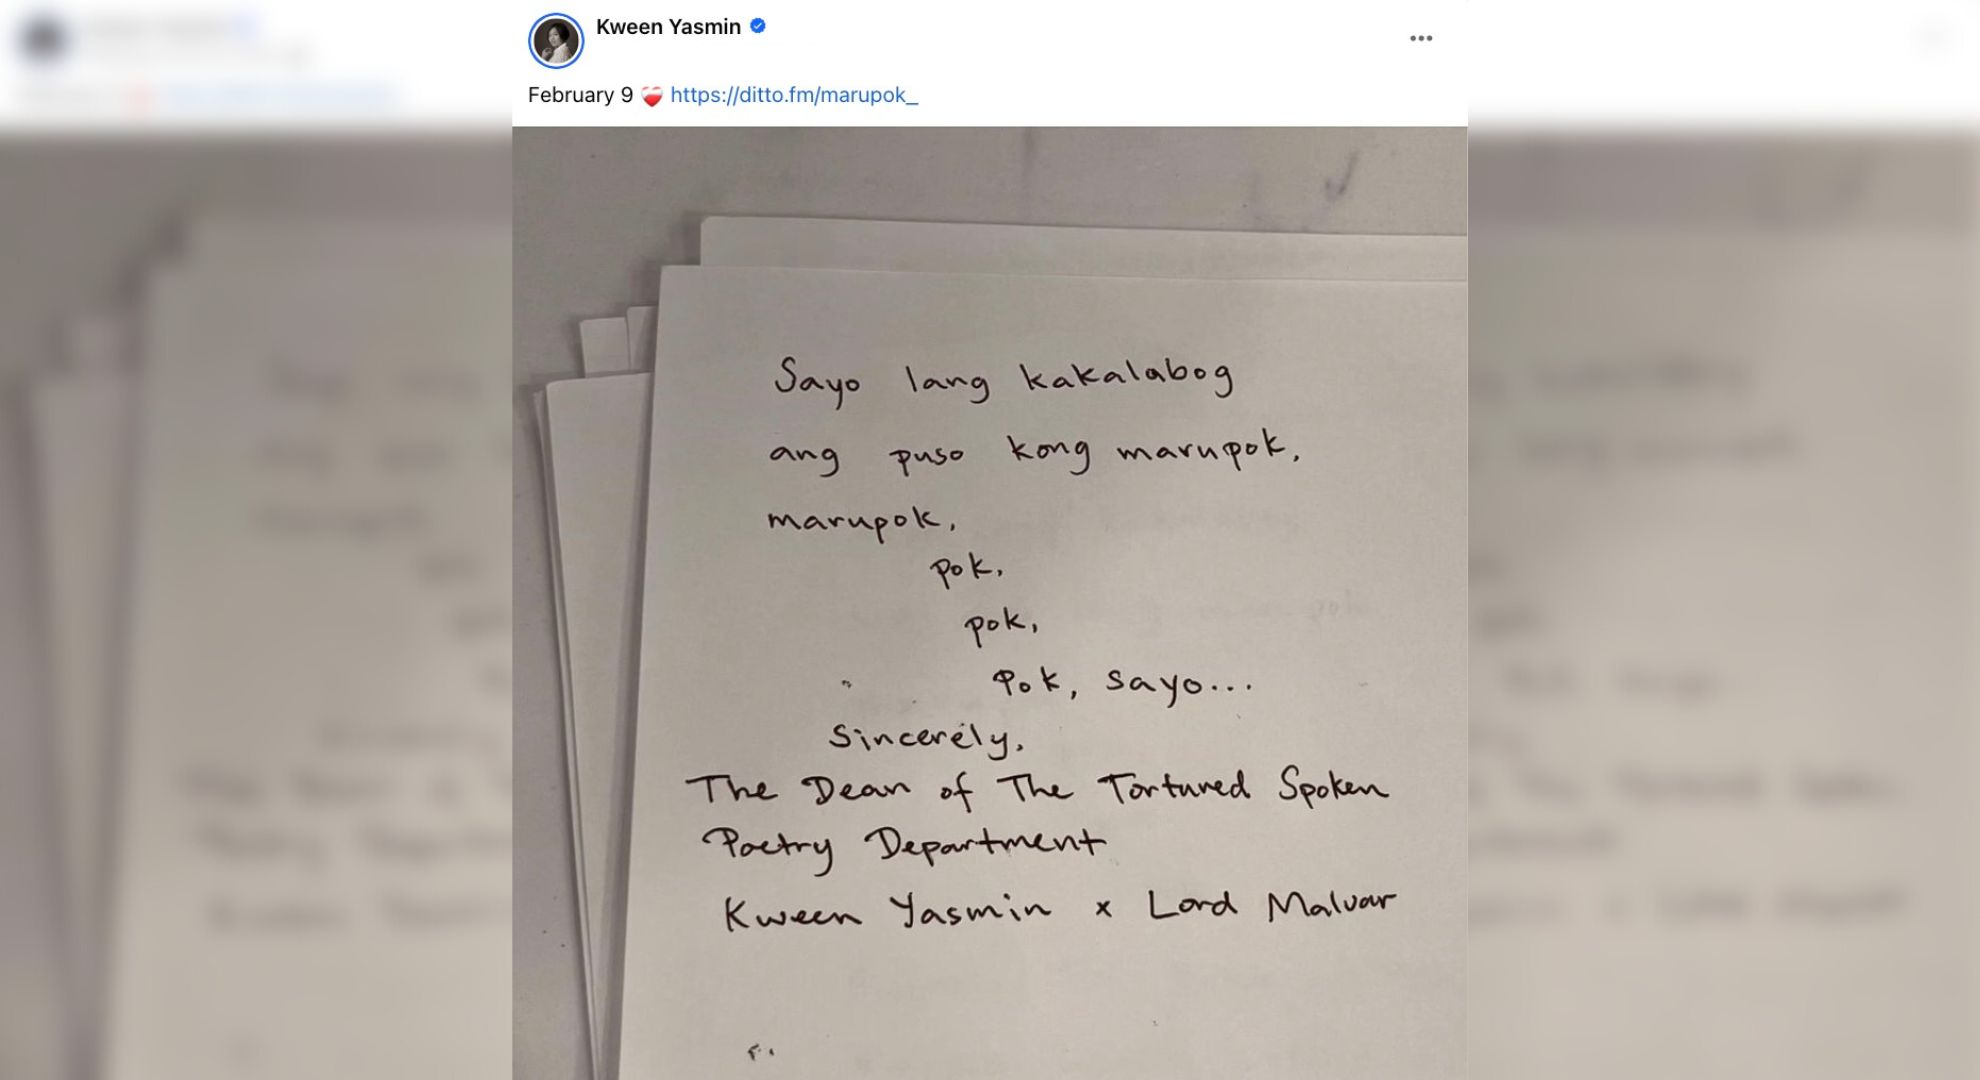 Kween Yasmin
February 9 ❤️‍🩹 https://ditto.fm/marupok_
Sayo lang kakalabog
ang puso kong marupok,
marupok,
pok,
pok,
Pok, sayo...
Sincerely,
The Dean of The Tortured Spoken
Poetry Department
Kween Yasmin x Lord Malvar